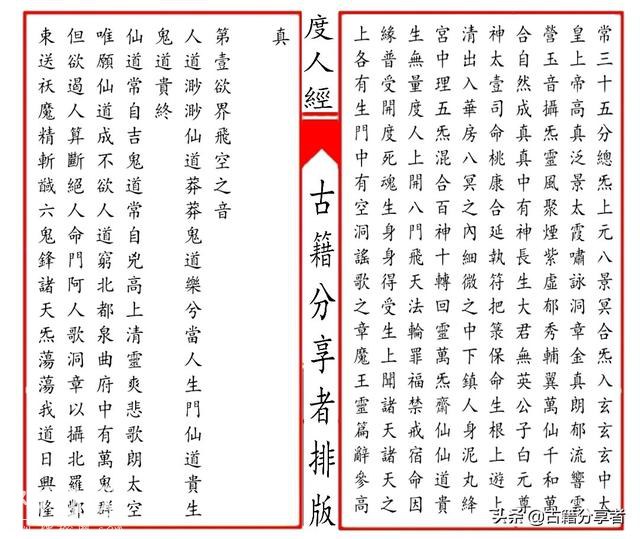 常三十五分總炁上元八景冥合炁入玄玄玄中大
皇上帝高真泛景太霞嘯詠洞章金真朗郁流響雲
營玉音攝炁靈風聚煙紫虛郁秀輔翼萬仙千和萬
合自然成真真中有神長生大君無英公子白元尊
神太壹司命桃康合延執符把籙保命生根上遊上
清出入華房八冥之內細微之中下鎮人身泥丸絳
宮中理五炁混合百神十轉回靈萬炁齊仙仙道貴
生無量度人上開八門飛天法輪罪福禁戒宿命因
緣普受開度死魂生身身得受生上聞諸天諸天之
上各有生門中有空洞謠歌之章魔王靈篇辭參高
度人經
古籍分享者排版
真
第壹欲界飛空之音
人道渺渺仙道莽莽鬼道樂兮當人生門仙道貴生
鬼道貴終
仙道常自吉鬼道常自兇高上清靈爽悲歌朗太空
唯願仙道成不欲人道窮北都泉曲府中有萬鬼群
但欲遏人算斷絕人命門阿人歌洞章以攝北羅酆
束送祅魔精斬馘六鬼鋒諸天炁蕩蕩我道日興隆
头条 @古籍分享者